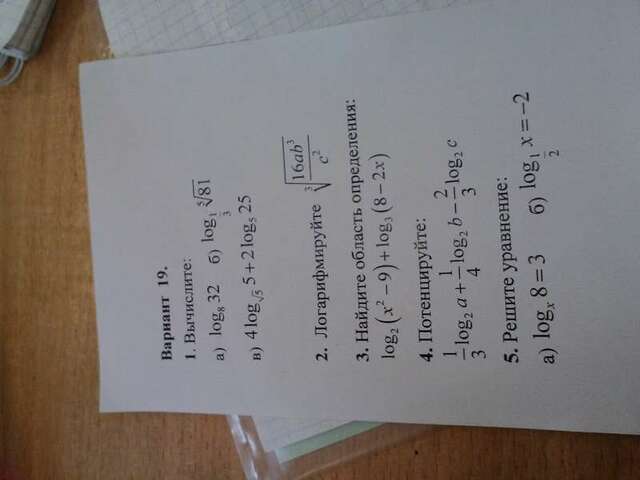 Вариант 19.
1. Вычислите:
а) log₈ 32 б) log_{1/3} ⁵√81
в) 4 log_{√5} 5 + 2 log₅ 25
2. Логарифмируйте ³√(16ab³/c²)
3. Найдите область определения:
log₂(x² − 9) + log₃(8 − 2x)
4. Потенцируйте:
1/3 log₂ a + 1/4 log₂ b − 2/3 log₂ c
5. Решите уравнение:
а) logₓ 8 = 3 б) log_{1/2} x = −2